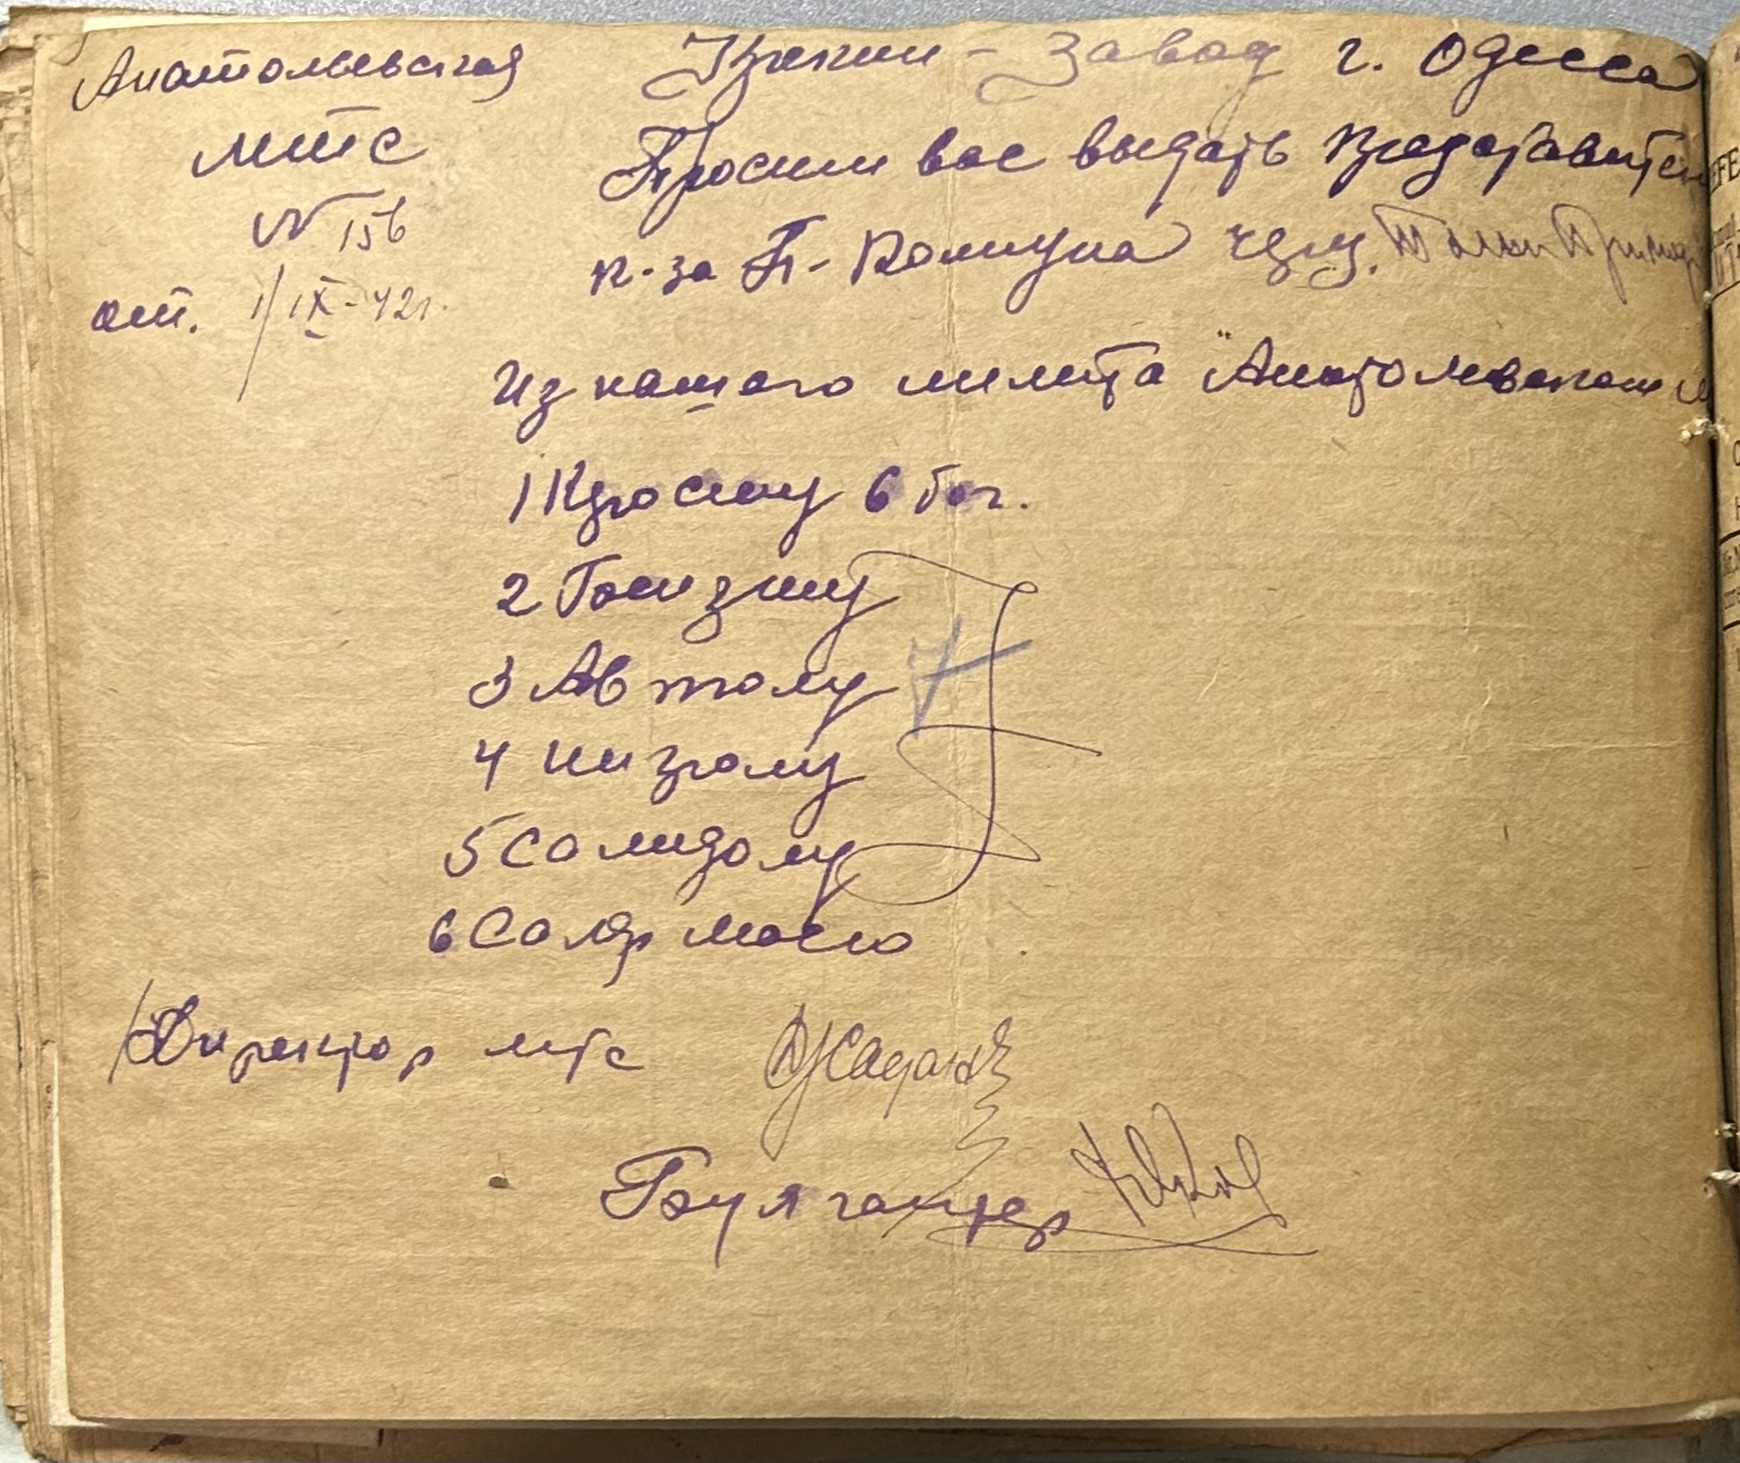 Анатольевская
МТС
№ 156
от. 1/IX-42г.
Крекин-завод г. Одесса
Просим вас выдать представител
к-за П-Комуна
Из нашего лимита "Анатольевском
1 Кросину 6 боч.
2 Бензину
3 Автолу
4 Нигролу
5 Солидолу
6 Соляр масло
7
Директор МТС
Бухгалтер